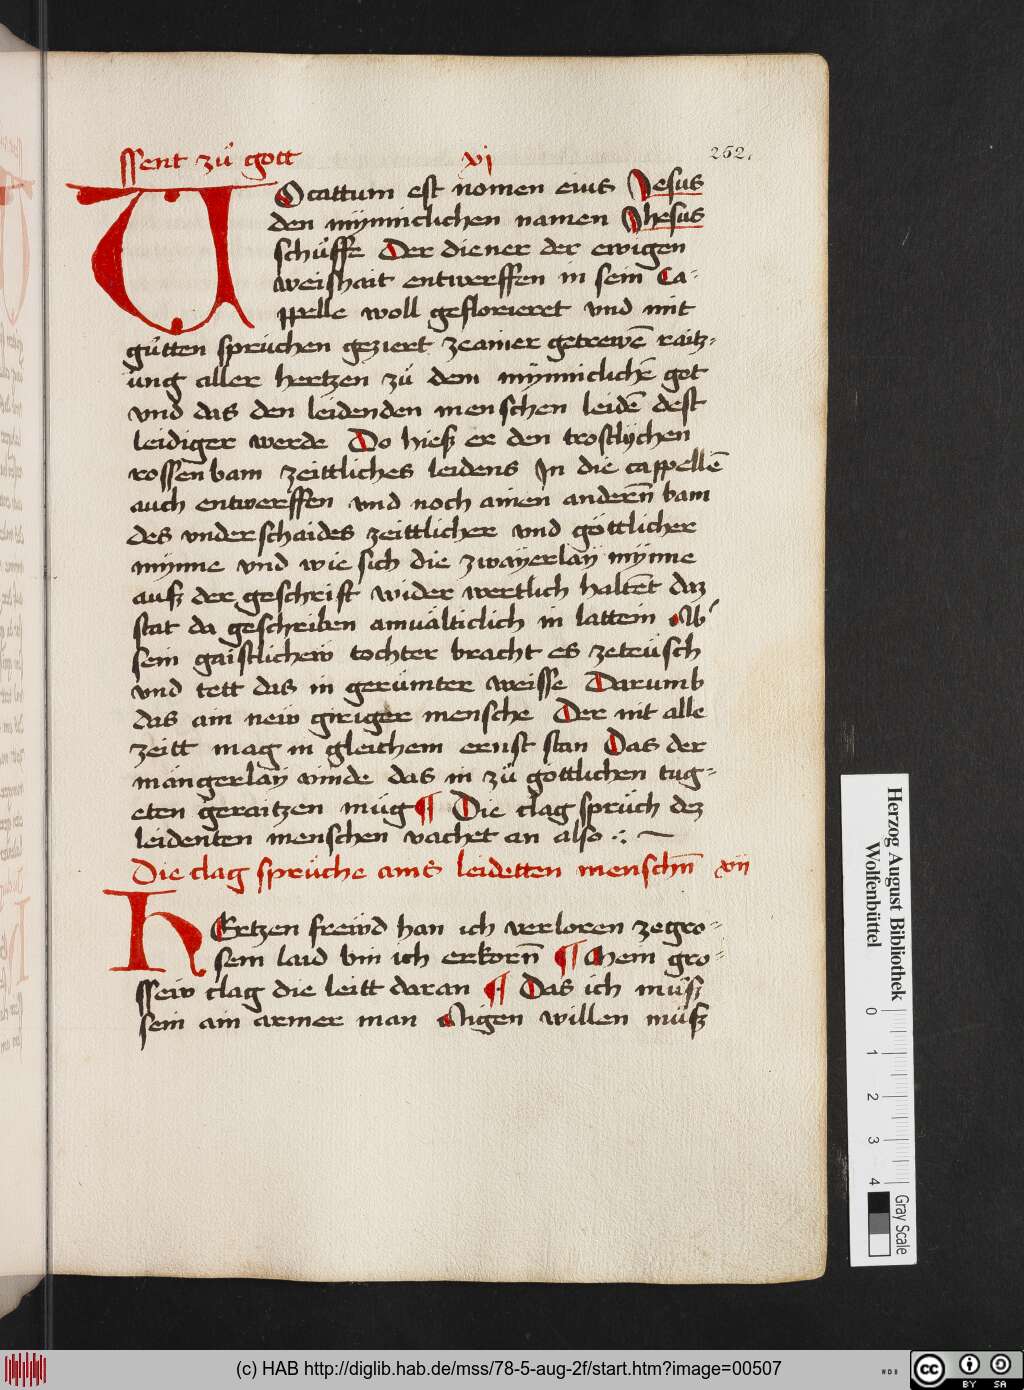 ssent zů gott xj 262.
VOcattum est nomen eius Jesus
den mynniclichen namen Jhesus
schůffe Der diener der ewigen
weishait entwerffen in sein Ca-
ppelle woll geflorieret vnd mit
gůtten sprüchen geziert zeainer getrewē raitz-
ung aller hertzen zů dem mynniclichē got
vnd das den leidenden menschen leidē dest
leidiger werde Do hieß er den trostlychen
rossenbam zeittliches leidens Jn die cappellē
auch entwerffen vnd noch ainen anderñ bam
des vnderschaides zeittlicher vnd göttlicher
mynne vnd wie sich die zwayerlay mynne
auß der geschrift wider wertlich haltēt daz
stat da geschriben ainuälticlich in lattein Ab
sein gaistlichew tochter bracht es zeteüsch
vnd tett das in gerümter weisse Darumb
das ain new giriger mensche Der nit alle
zeitt mag in gleichem ernst stan Das der
mangerlay vinde das in zů göttlichen tug-
eten geraitzen müg ¶ Die clag sprüch dez
leidenten menschen vachet an also
Die clag sprüche ains leidetten menschñ xij
HErtzen frewd han ich verloren zegro-
sem laid bin ich erkorñ ¶ Mein gro-
ssew clag die leitt daran ¶ Das ich müß
sein ain armer man Aigen willen müß
Herzog August Bibliothek
Wolfenbüttel
0 1 2 3 4
Gray Scale
(c) HAB http://diglib.hab.de/mss/78-5-aug-2f/start.htm?image=00507
WDB
cc BY SA